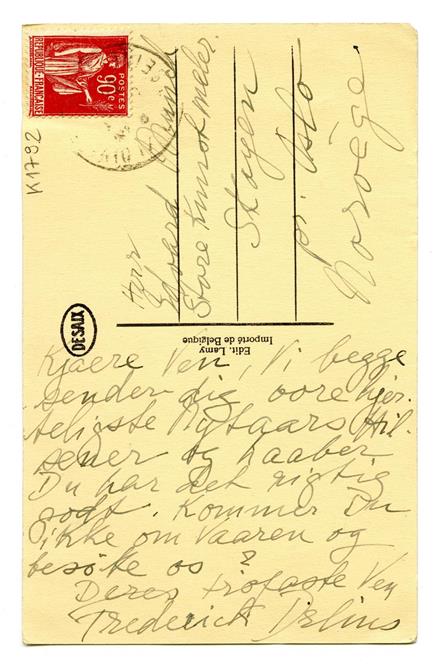 POSTES
90c
RÉPUBLIQUE FRANÇAISE
K1792
Herr
Edvard Munch
Store Kunstmaler.
Skøyen
pr. Oslo
Norvège
DESAIX
Edit. Lamy
Importé de Belgique
Kjaere Ven, Vi begge
sender dig vore hjer-
teligste Nytaars Hil-
sener og haaber
Du har det rigtig
godt. Kommer Du
ikke om Vaaren og
besöke os?
Deres trofaste Ven
Frederick Delius